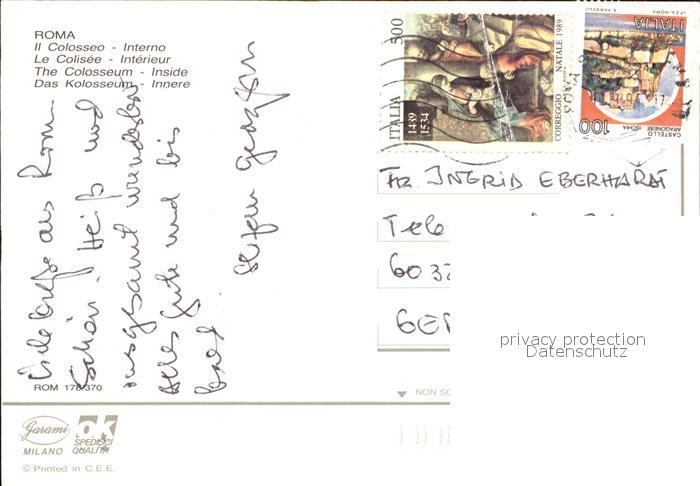 ROMA
Il Colosseo - Interno
Le Colisée - Intérieur
The Colosseum - Inside
Das Kolosseum - Innere
Viele Grüße aus Rom.
Schön. Heiß und
insgesamt wunderbar
Alles Gute und bis
bald.
ROM 178/370
Garami
MILANO
ok
SPEDISCI
QUALITÀ
© Printed in C.E.E.
500
ITALIA
1489
1534
CORREGGIO
NATALE 1989
I.P.Z.S. - ROMA
E. VANGELLI
ITALIA
100
CASTELLO
ARAGONESE ISCHIA
Fr. INGRID EBERHARDT
Tele
603
GER
privacy protection
Datenschutz
NON SC